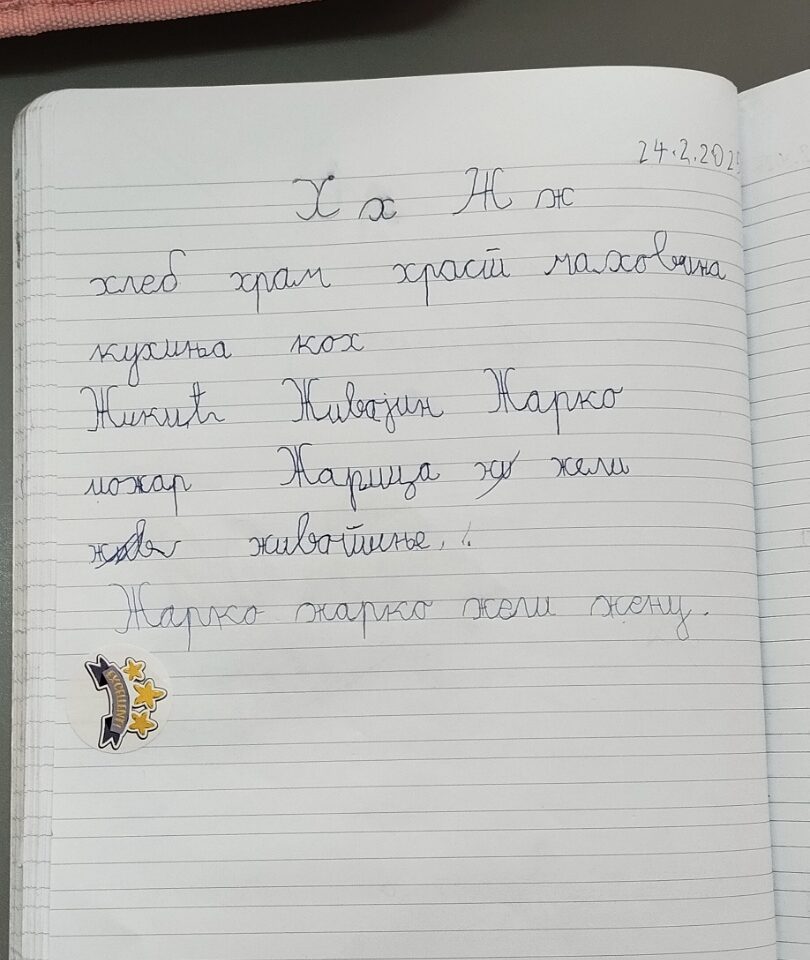 24.2.202
Х х Ж ж
хлеб храм храст маховина
кухиња кох
Жикић Живојин Жарко
пожар Жарица жели
животиње.
Жарко жарко жели жену.
EXCELLENT